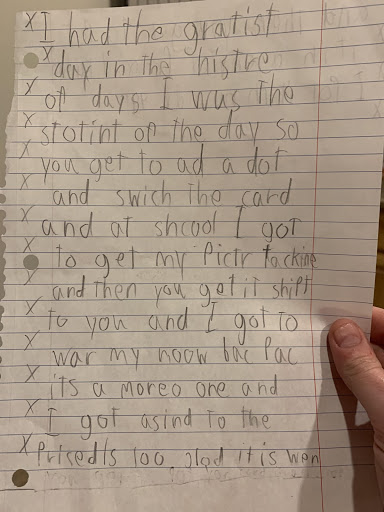 X I had the gratist
X day in the histrey
X of days I wus the
X stotint of the day so
X you get to ad a dot
X and swich the card
X and at shcool I got
X to get my Pictr tackine
X and then you get it shift
X to you and I got to
X war my noow bac Pac
X its a moreo one and
X I got asind to the
X